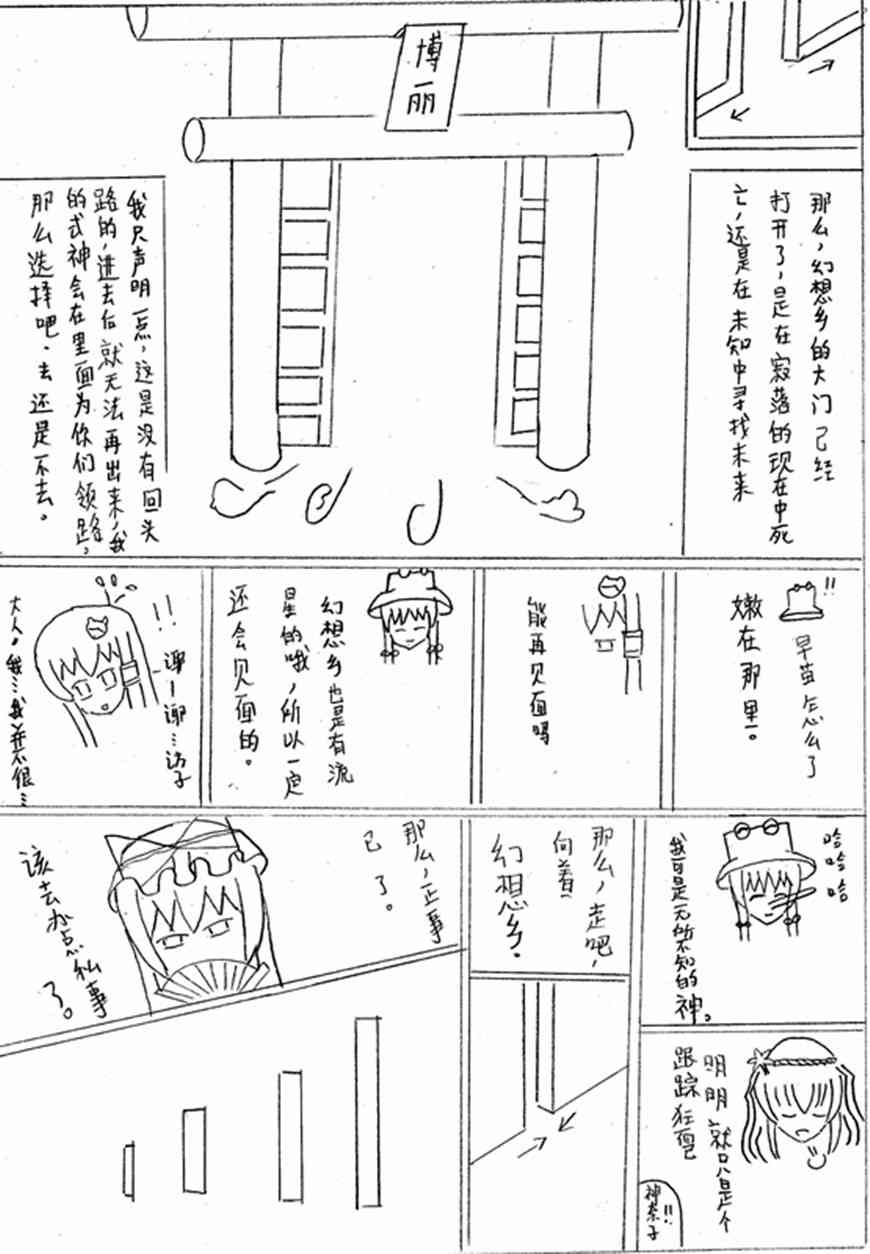 博丽
那么，幻想乡的大门已经
打开了，是在寂落的现在中死
亡，还是在未知中寻找未来
我只声明一点，这是没有回头
路的，进去后就无法再出来，我
的式神会在里面为你们领路，
那么选择吧．去还是不去。
!!
早苗怎么了
嫩在那里。
能再见面吗
幻想乡也是有流
星的哦，所以一定
还会见面的。
!!
谢－谢…访子
大人。我…我并不很…
哈哈哈
我可是无所不知的神。
明明就只是个
跟踪狂而已
神奈子!!
那么，走吧，
向着
幻想乡．
那么，正事
已了。
该去办点私事
了。